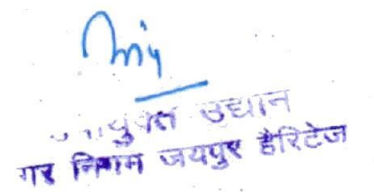 उद्यान
गर निगम जयपुर हैरिटेज